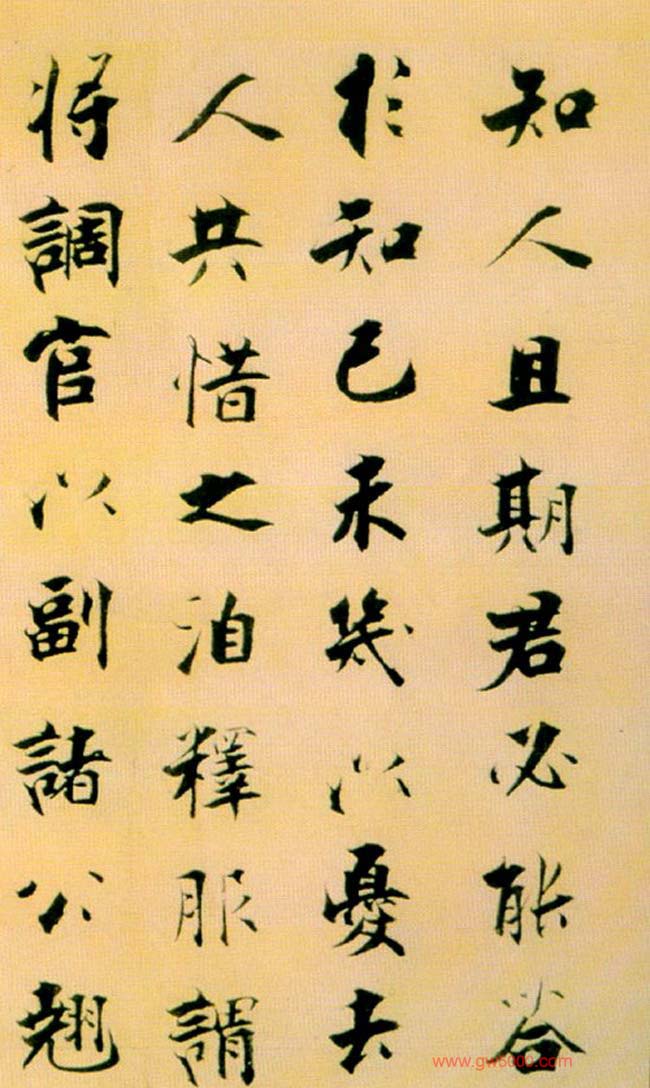 知人且期君必能答
於知己未幾以憂去
人共惜之洎釋服謂
将調官以副諸公翹
www.gw8000.com